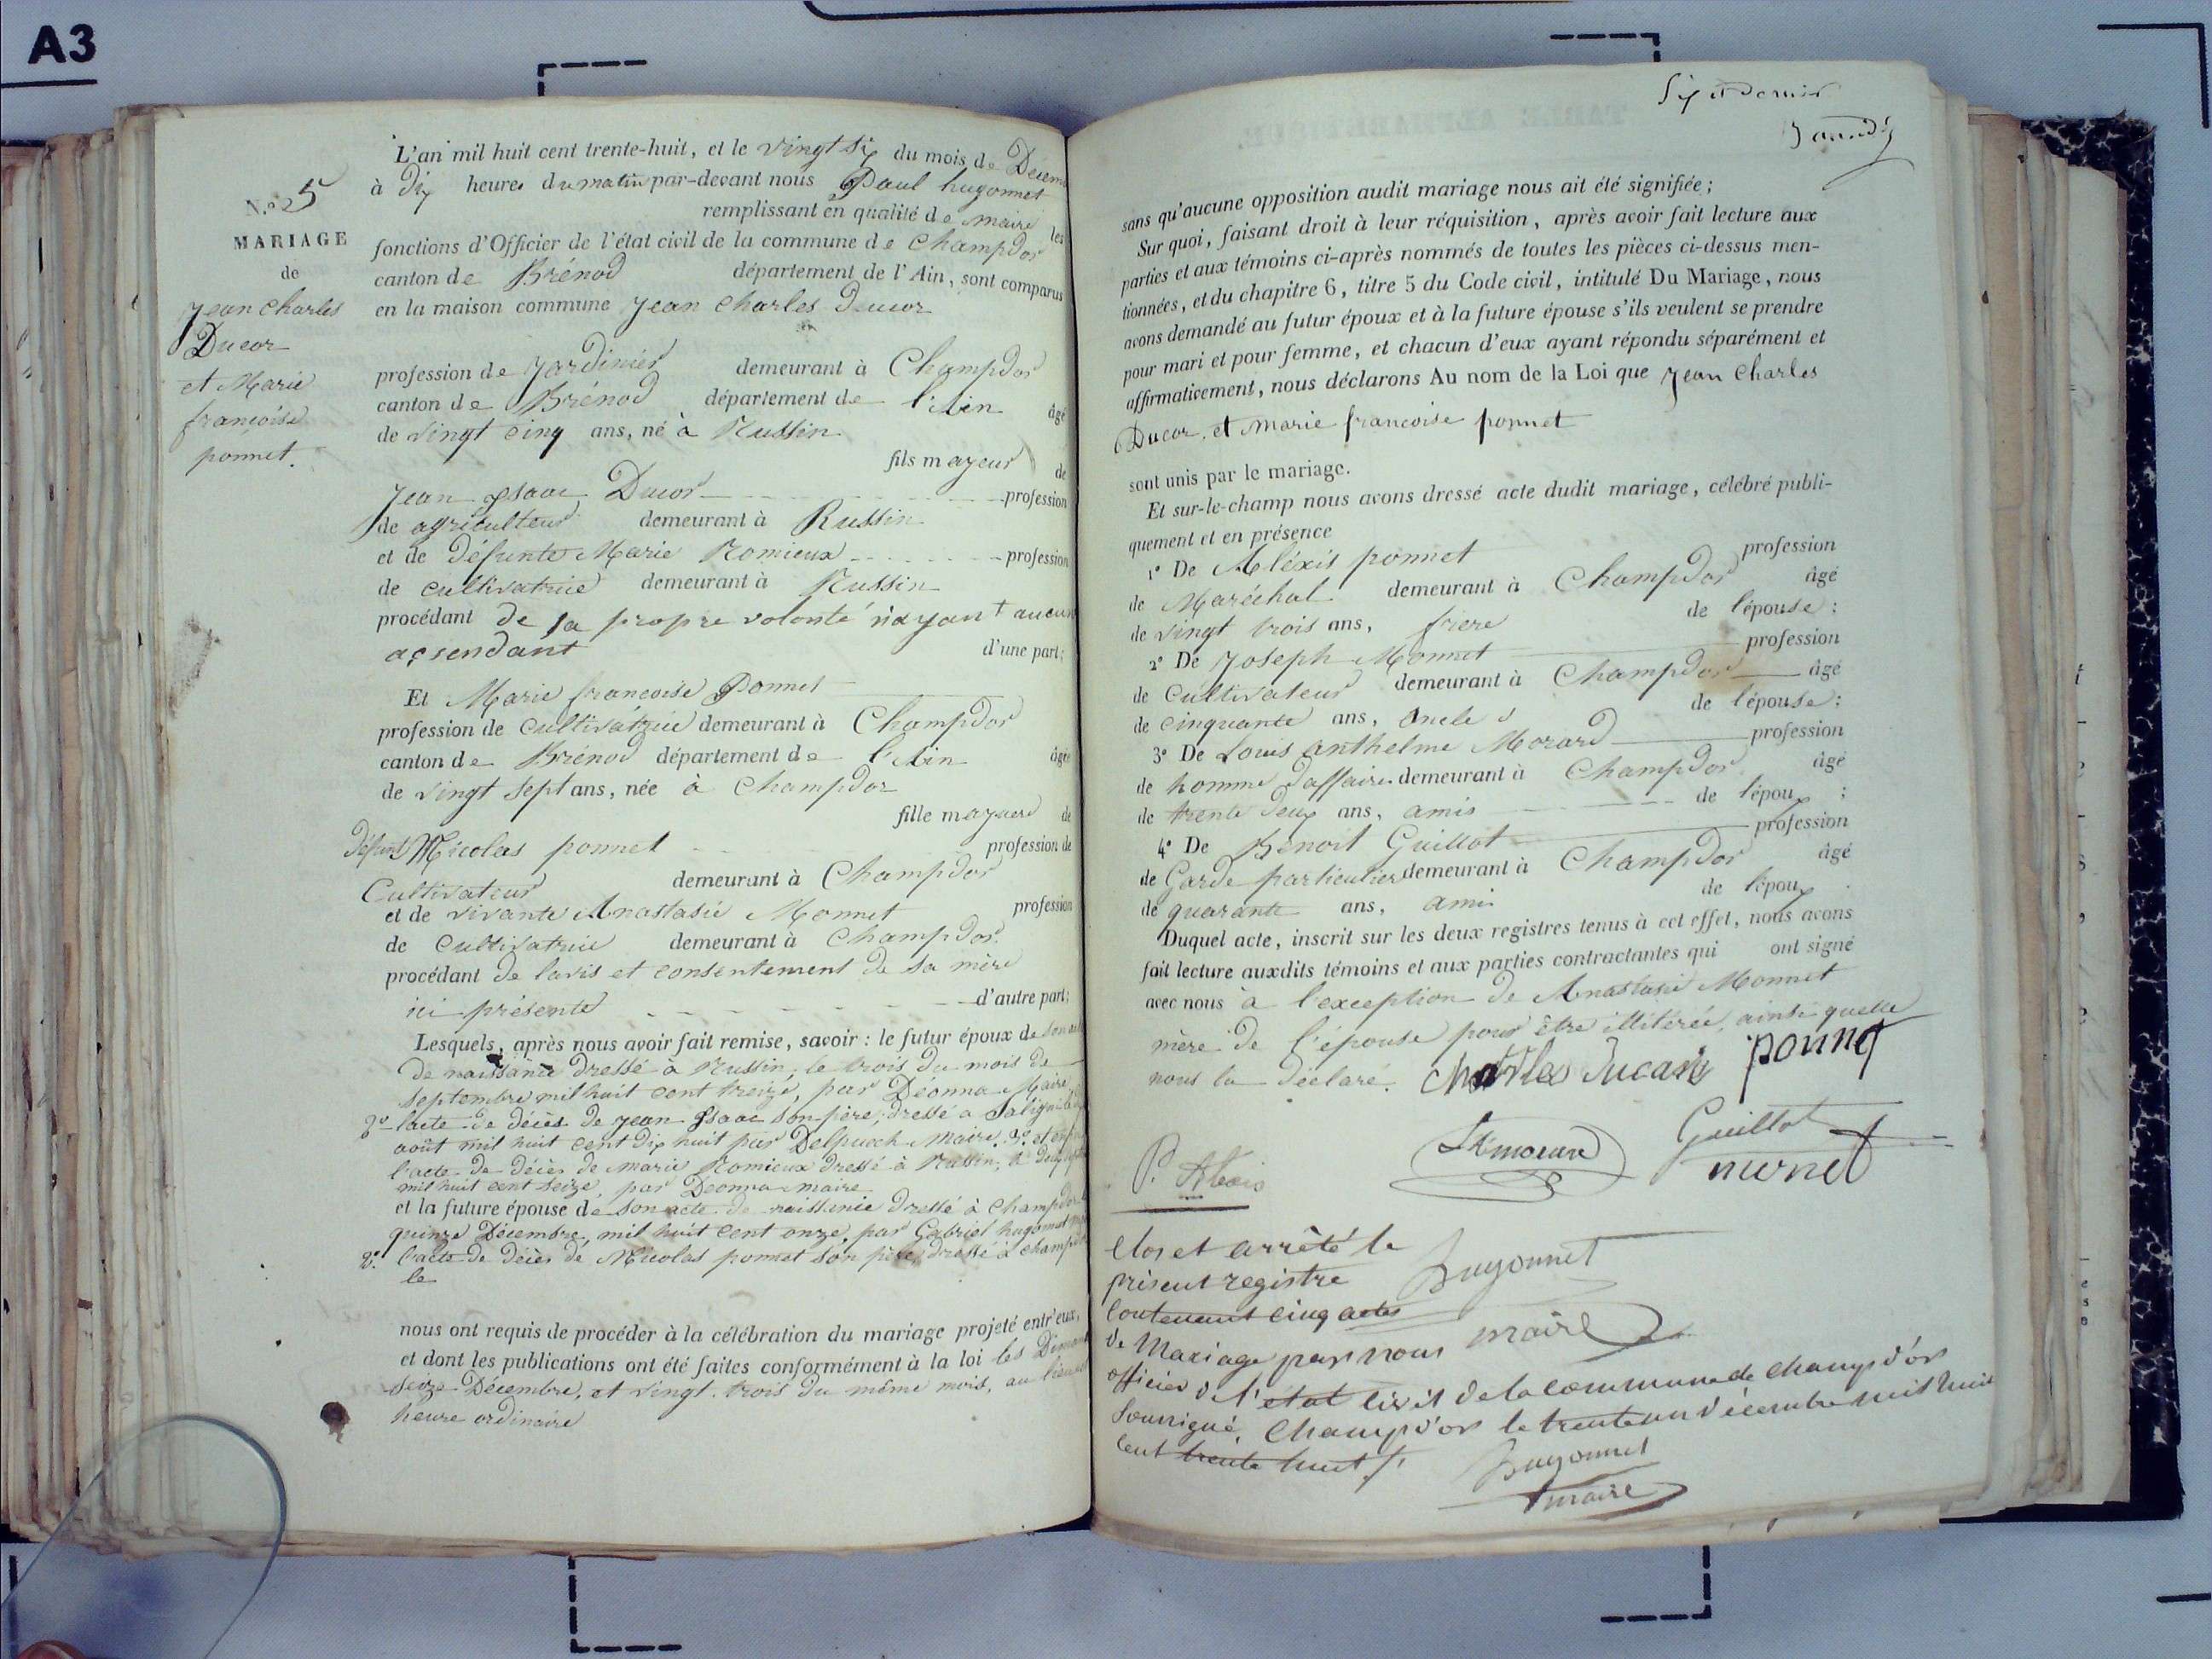 A3
N.o 5
MARIAGE
de
Jean Charles
Ducor
et Marie
francoise
ponnet.
L'an mil huit cent trente-huit, et le vingt six du mois de Décem
à dix heures du matin par-devant nous Paul hugonnet
remplissant en qualité de maire les
fonctions d'Officier de l'état civil de la commune de Champdor
canton de Brénod département de l'Ain, sont comparus
en la maison commune Jean Charles Ducor
profession de Jardinier demeurant à Champdor
canton de Brénod département de l'Ain âgé
de vingt cinq ans, né à Russin
fils mayeur de
Jean Isaac Ducor profession
de agriculteur demeurant à Russin
et de défunte Marie Romieux profession
de cultivatrice demeurant à Russin
procédant de sa propre volonté n'ayant aucun
assendant d'une part;
Et Marie francoise Ponnet
profession de cultivatrice demeurant à Champdor
canton de Brénod département de l'Ain âgée
de vingt sept ans, née à Champdor
fille mayeure de
défunt Nicolas ponnet profession de
Cultivateur demeurant à Champdor
et de vivante Anastasie Monnet profession
de Cultivatrice demeurant à Champdor
procédant de lavis et consentement de sa mère
ici présente d'autre part;
Lesquels, après nous avoir fait remise, savoir : le futur époux de son
de naissance dressé à Russin, le trois du mois de
septembre mil huit cent treize, par Déonna Maire
2o l'acte de décès de jean Isaac son père, dressé a
août mil huit cent dix huit par Delpuech Maire. 3o. et
l'acte de décès de marie Romieux dressé à Russin, le deux
mil huit cent seize, par Deonna maire
et la future épouse de son acte de naissance dressé à Champdor
quinze Décembre, mil huit cent onze, par Gabriel hugonnet
2o. l'acte de décès de Nicolas ponnet son père, dressé à champdor
le
nous ont requis de procéder à la célébration du mariage projeté entr'eux,
et dont les publications ont été faites conformément à la loi les
seize Décembre, et vingt trois du même mois, au lieu
heure ordinaire
Six et dernier
sans qu'aucune opposition audit mariage nous ait été signifiée ;
Sur quoi, faisant droit à leur réquisition, après avoir fait lecture aux
parties et aux témoins ci-après nommés de toutes les pièces ci-dessus men-
tionnées, et du chapitre 6, titre 5 du Code civil, intitulé Du Mariage, nous
avons demandé au futur époux et à la future épouse s'ils veulent se prendre
pour mari et pour femme, et chacun d'eux ayant répondu séparément et
affirmativement, nous déclarons Au nom de la Loi que Jean Charles
Ducor, et Marie francoise ponnet
sont unis par le mariage.
Et sur-le-champ nous avons dressé acte dudit mariage, célébré publi-
quement et en présence
1o De Aléxis ponnet profession
de Maréchal demeurant à Champdor âgé
de vingt trois ans, frere de l'épouse ;
2o De Joseph Monnet profession
de Cultivateur demeurant à Champdor âgé
de cinquante ans, Oncle de l'épouse ;
3o De Louis Anthelme Morard profession
de homme daffaire demeurant à Champdor âgé
de trente deux ans, amis de l'époux ;
4o De Benoit Guillot profession
de Garde particulier demeurant à Champdor âgé
de quarante ans, ami de l'époux
Duquel acte, inscrit sur les deux registres tenus à cet effet, nous avons
fait lecture auxdits témoins et aux parties contractantes qui ont signé
avec nous à l'exception de Anastasie Monnet
mère de l'épouse pour être illitérée, ainsi quelle
nous la déclaré. Charles ponnet
Guillot
P. Alexis
Clos et arrêté le
présent registre hugonnet
Contenant cinq actes
de Mariage par nous maire
officier de l'état civil de la commune de Champd'or
Soussigné, Champd'or le trente un décembre mil huit
cent trente huit
hugonnet
maire